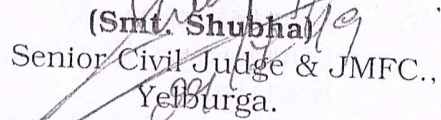 (Smt. Shubha)
Senior Civil Judge & JMFC.,
Yelburga.